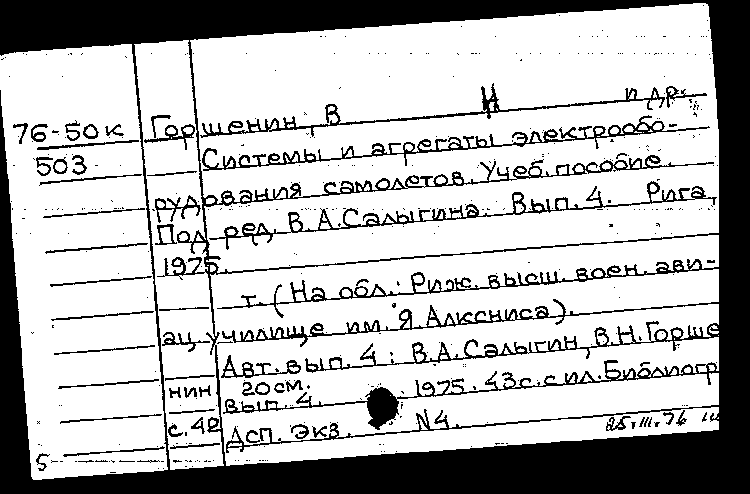 76-50к Горшенин, В Н и др.
503 Системы и агрегаты электрообо-
рудования самолетов. Учеб. пособие.
Под ред. В.А.Салыгина. Вып. 4. Рига,
1975.
т. (На обл.: Риж. высш. воен. ави-
ац. училище им. Я Алксниса).
Авт. вып. 4: В.А.Салыгин, В.Н.Горше
нин 20см.
вып. 4. 1975. 43с. с ил. Библиогр
с. 42 ДСП. Экз. N4. 25.III.76
5